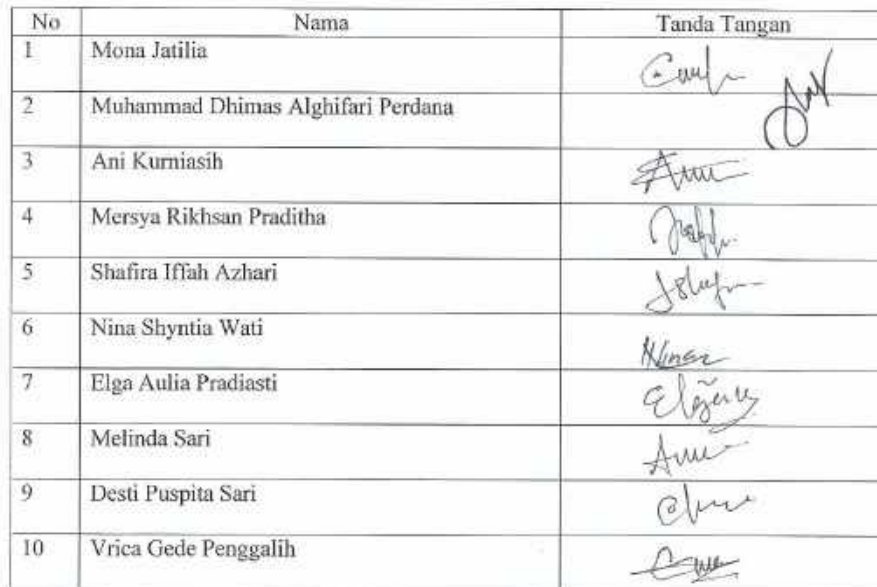 No Nama Tanda Tangan
1 Mona Jatilia
2 Muhammad Dhimas Alghifari Perdana
3 Ani Kurniasih
4 Mersya Rikhsan Praditha
5 Shafira Iffah Azhari
6 Nina Shyntia Wati
7 Elga Aulia Pradiasti
8 Melinda Sari
9 Desti Puspita Sari
10 Vrica Gede Penggalih